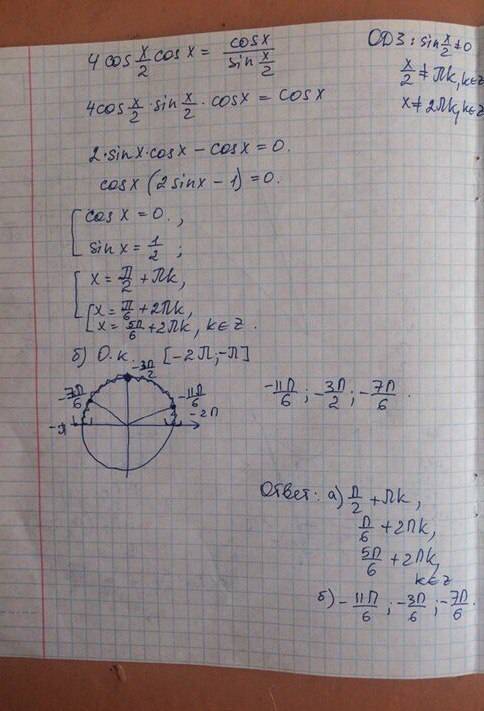 4cos x/2 cosx = cosx / sin x/2
ОДЗ: sin x/2 ≠ 0
x/2 ≠ Πk, k∈Z
x ≠ 2Πk, k∈Z
4cos x/2 · sin x/2 · cosx = cosx
2·sinx·cosx − cosx = 0.
cosx (2sinx − 1) = 0.
[ cosx = 0.,
sinx = 1/2 ;
[ x = Π/2 + Πk,
[ x = Π/6 + 2Πk,
x = 5Π/6 + 2Πk, k∈Z.
б) О.к. [−2Π;−Π]
−3Π/2
−7Π/6
−11Π/6
−Π
−2Π
−11Π/6 ; −3Π/2 ; −7Π/6 .
Ответ: а) Π/2 + Πk,
Π/6 + 2Πk,
5Π/6 + 2Πk,
k∈Z
б) −11Π/6 ; −3Π/6 ; −7Π/6 .